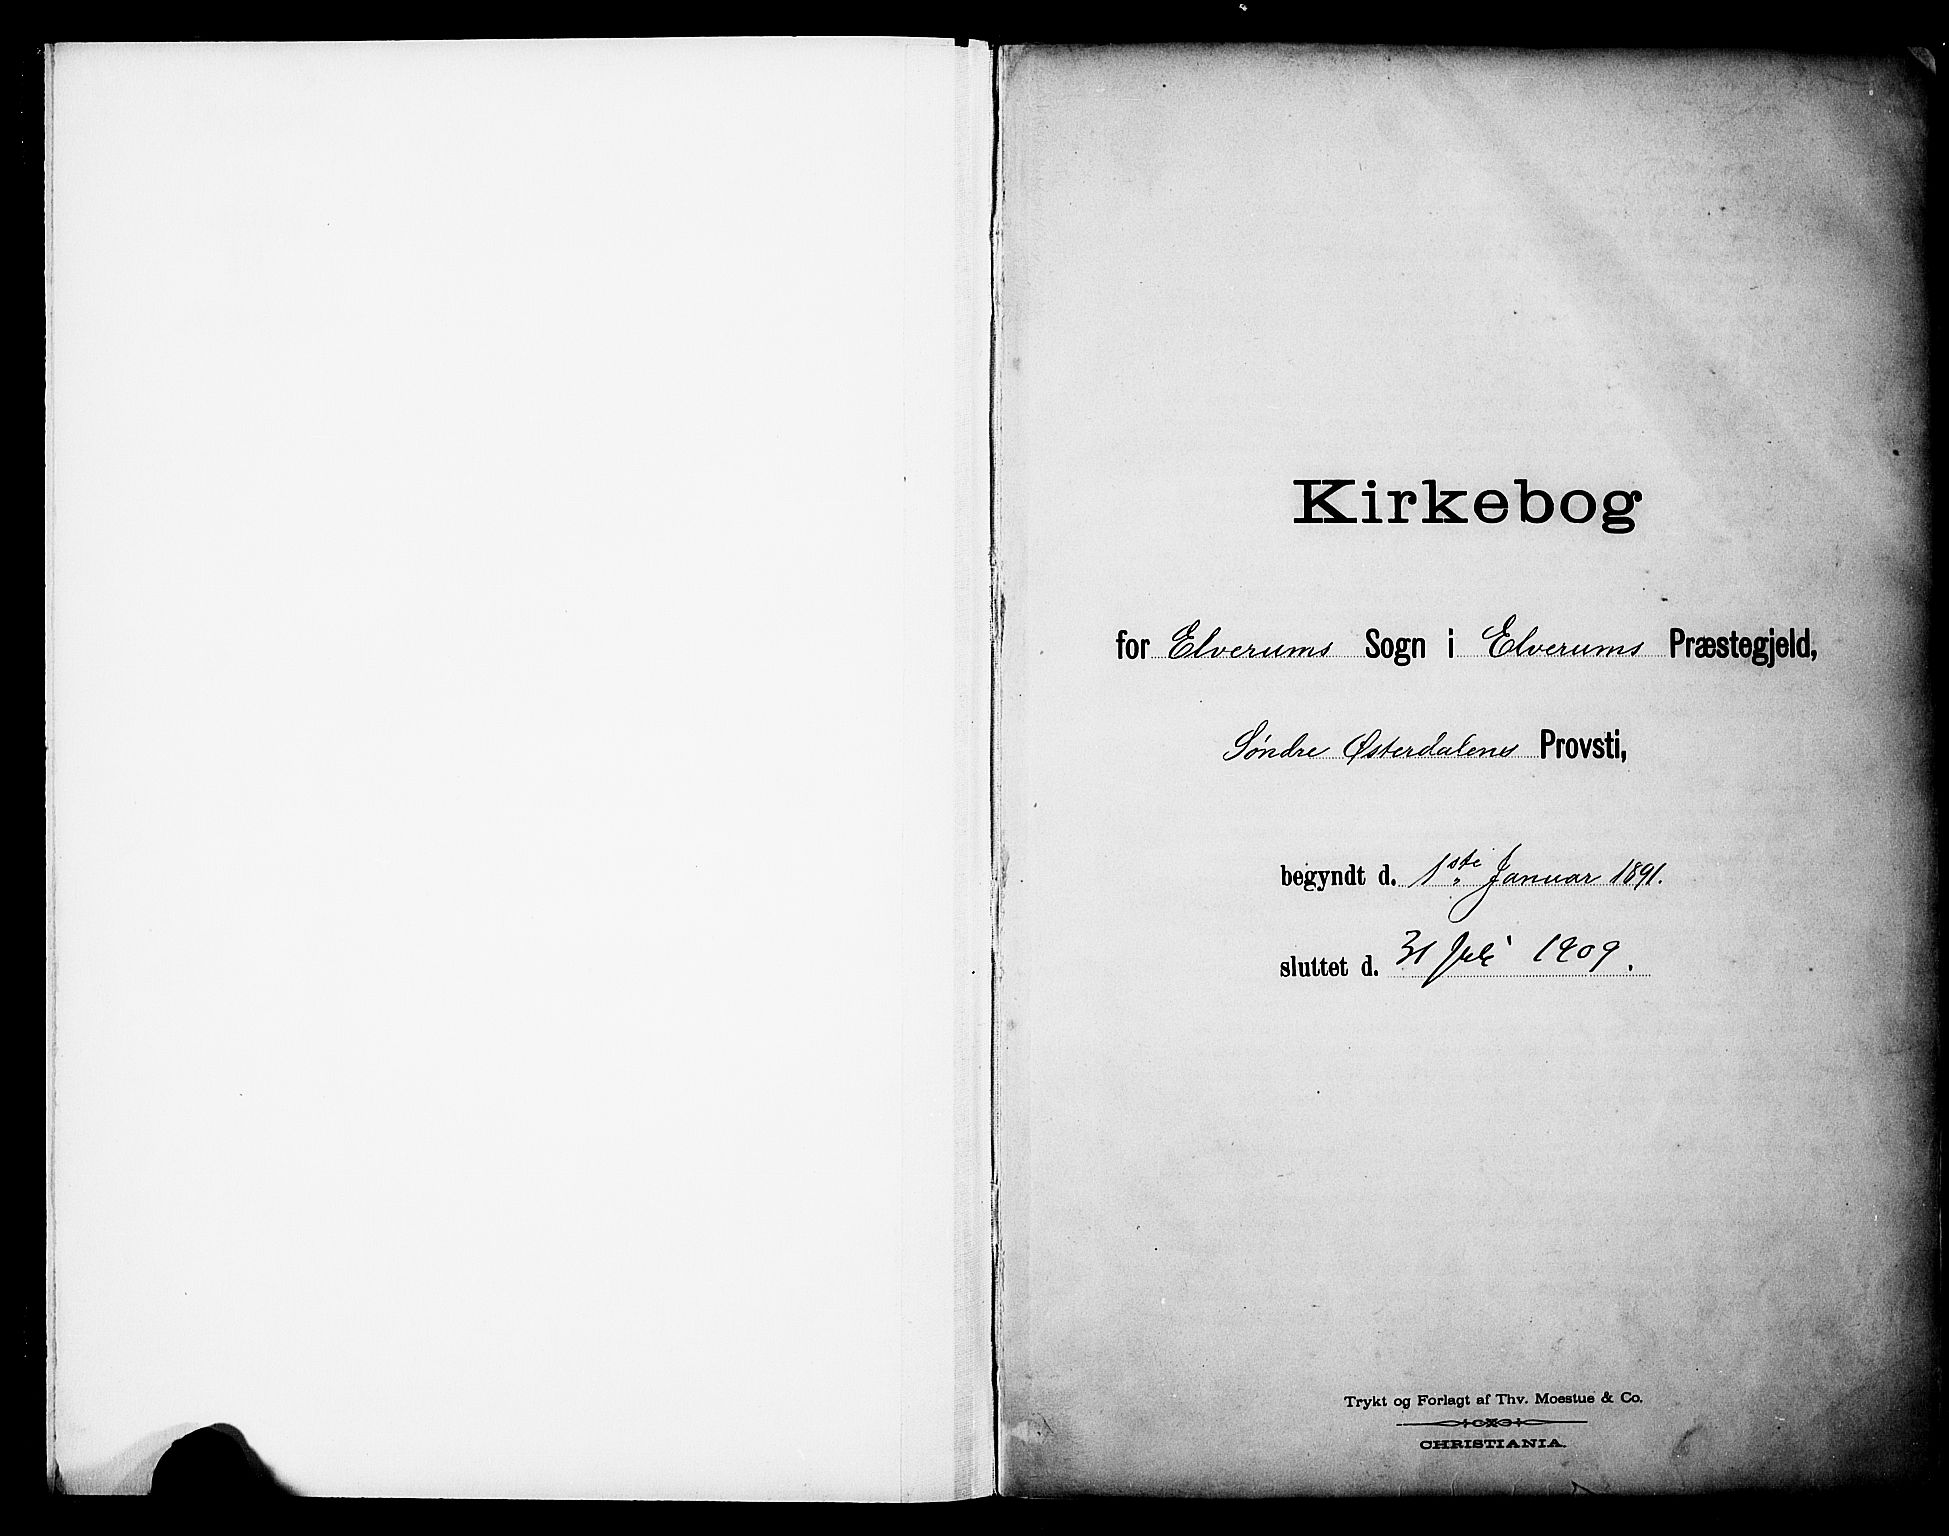 Kirkebog
for Elverums Sogn i Elverums Præstegjeld,
Søndre Østerdalens Provsti,
begyndt d. 1ste Januar 1891.
sluttet d. 31 Juli 1909.
Trykt og Forlagt af Thv. Moestue & Co.
CHRISTIANIA.